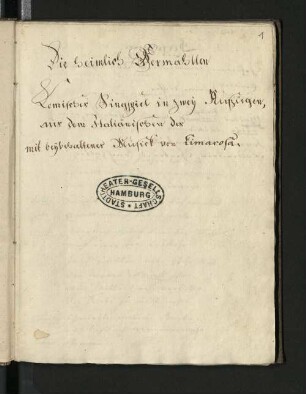 1
Die heimlich Vermählten
Komisches Singspiel in zwey Aufzügen,
aus dem Italiänischen der
mit beybehaltener Musick von Cimarosa.
STADTTHEATER-GESELLSCHAFT
HAMBURG